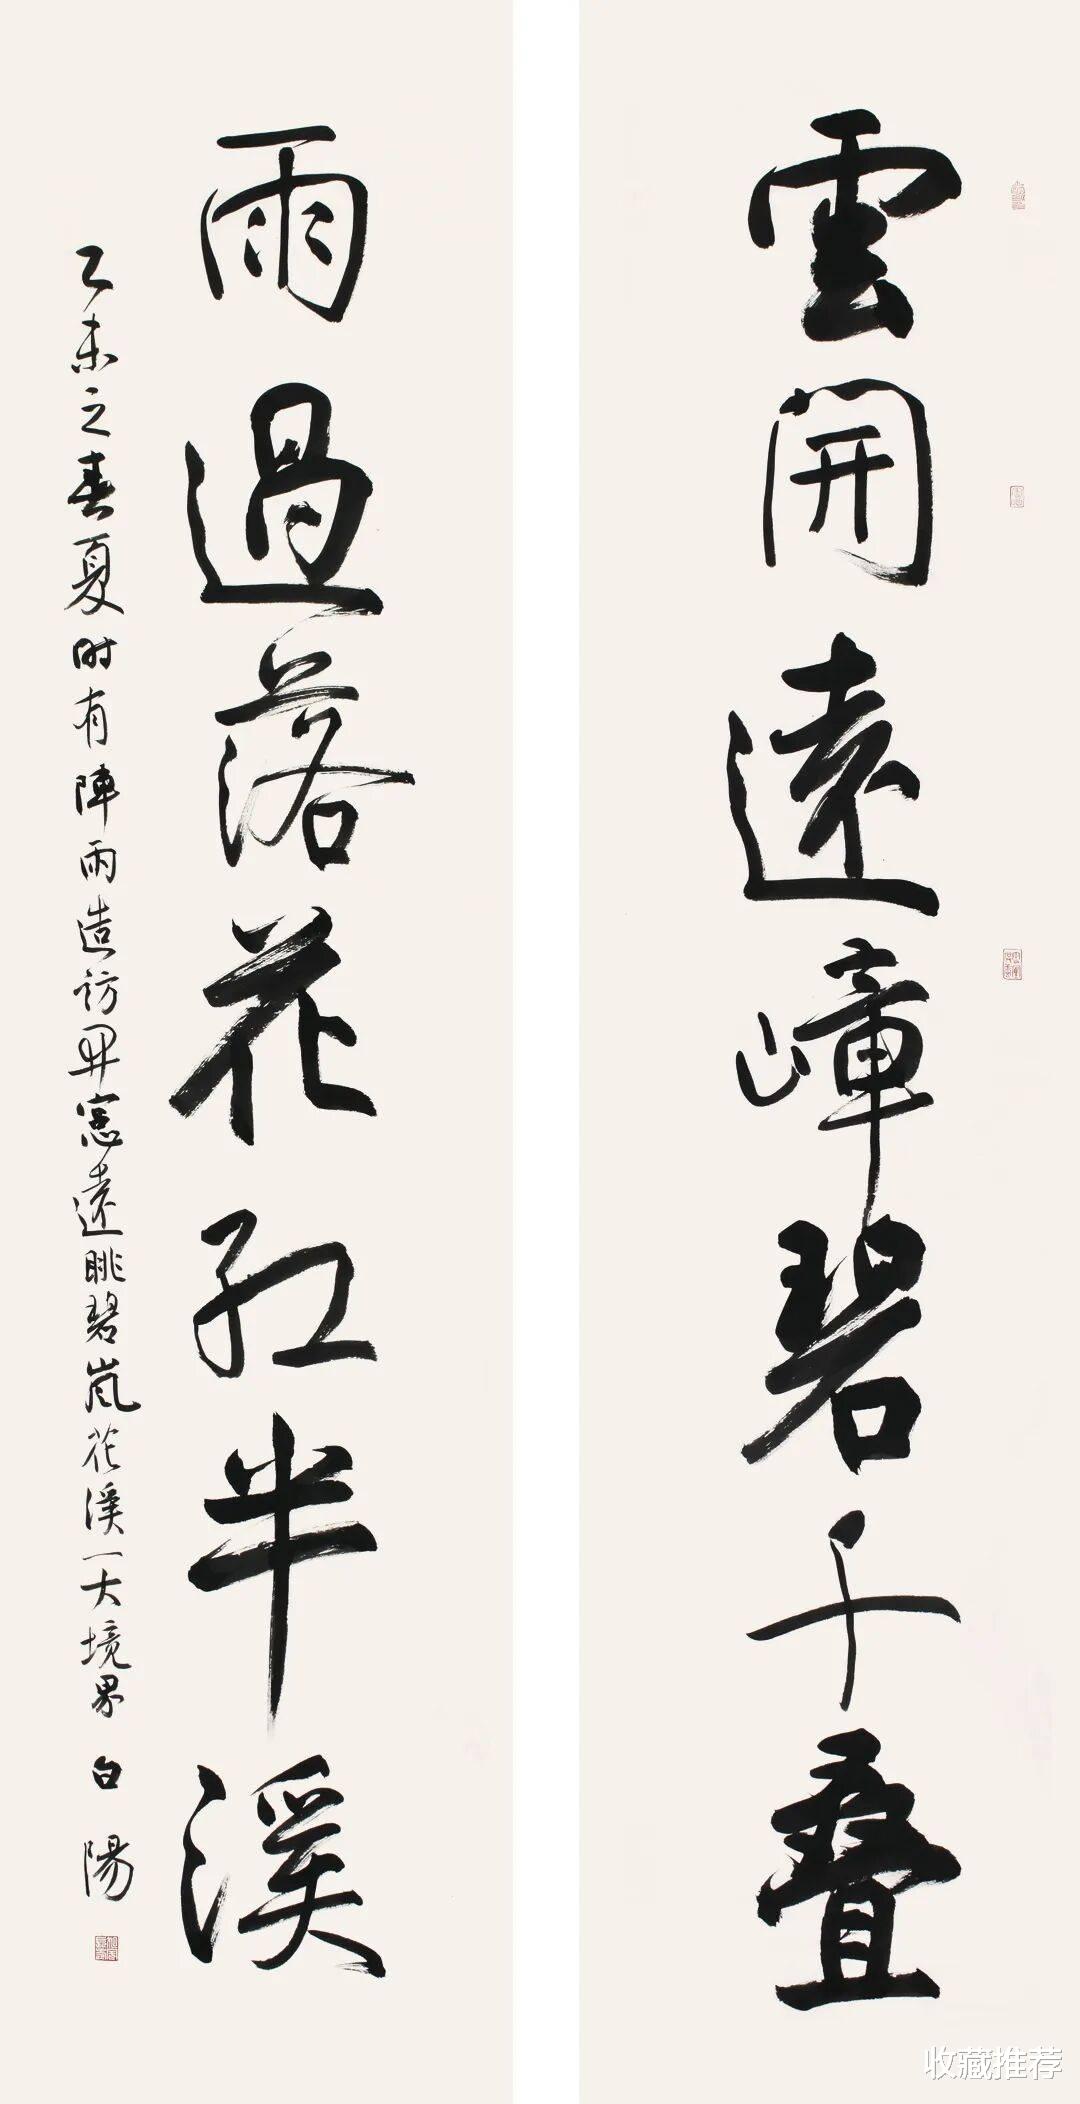 雲開遠嶂碧千叠
雨過落花紅半溪
乙未之春夏時有陣雨造訪開窗遠眺碧嵐花溪一大境界 白陽
收藏推荐